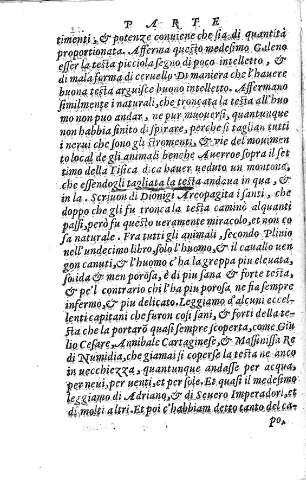 PARTE
timenti, & potenze conuiene che sia di quantità
proportionata. Afferma questo medesimo Galeno
esser la testa picciola segno di poco intelletto, &
di mala forma di ceruello Di maniera che l'hauere
buona testa arguisce buono intelletto. Affermano
similmente i naturali, che troncata la testa all'huo
mo non puo andar, ne pur mouersi, quantunque
non habbia finito di spirare, perche si taglian tutti
i nerui che sono gli stromenti, & vie del mouimen
to local de gli animali benche Auerroe sopra il set
timo della Fisica dica hauer veduto un montone,
che essendogli tagliata la testa andaua in qua, &
in la. Scriuon di Dionigi Areopagita i santi, che
doppo che gli fu tronca la testa caminò alquanti
passi, però fu questo veramente miracolo, et non co
sa naturale. Fra tutti gli animali, secondo Plinio
nell'undecimo libro, solo l'huomo, & il cauallo uen
gon canuti, & l'huomo c'ha la greppa piu eleuata,
soluda & men porosa, è di piu sana & forte testa,
& pe'l contrario chi l'ha piu porosa ne sia sempre
infermo, & piu delicato. Leggiamo d'alcuni eccel-
lenti capitani che furon così sani, & forti della te-
sta che la portarò quasi sempre scoperta, come Giu
lio Cesare, Annibale Cartaginese, & Massinissa Re
di Numidia, che giamai si coperse la testa ne anco
in uecchiezza, quantunque andasse per acqua,
per neui, per uenti, et per sole. Et quasi il medesimo
leggiamo di Adriano, & di Seuero Imperadori, et
di molti altri. Et poi c'habbiam detto tanto del ca-
po,